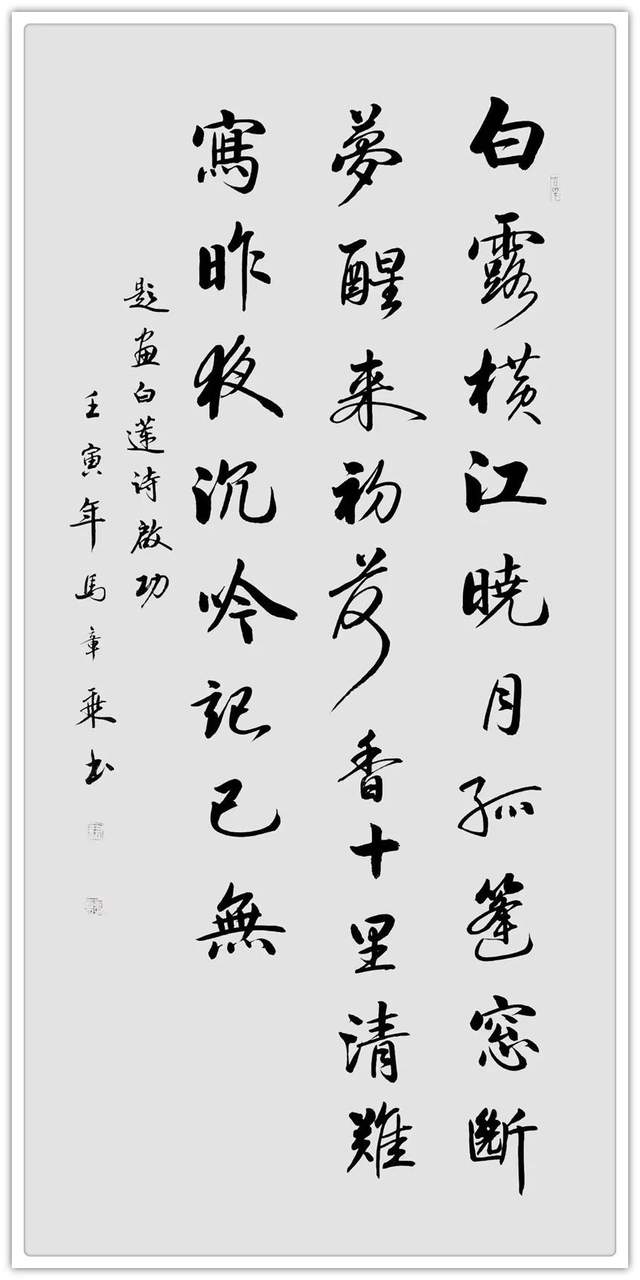 白露橫江曉月孤篷窓斷
夢醒来初荷香十里清難
寫昨夜沉吟記已無
題畫白蓮詩啟功
壬寅年馬章乘书